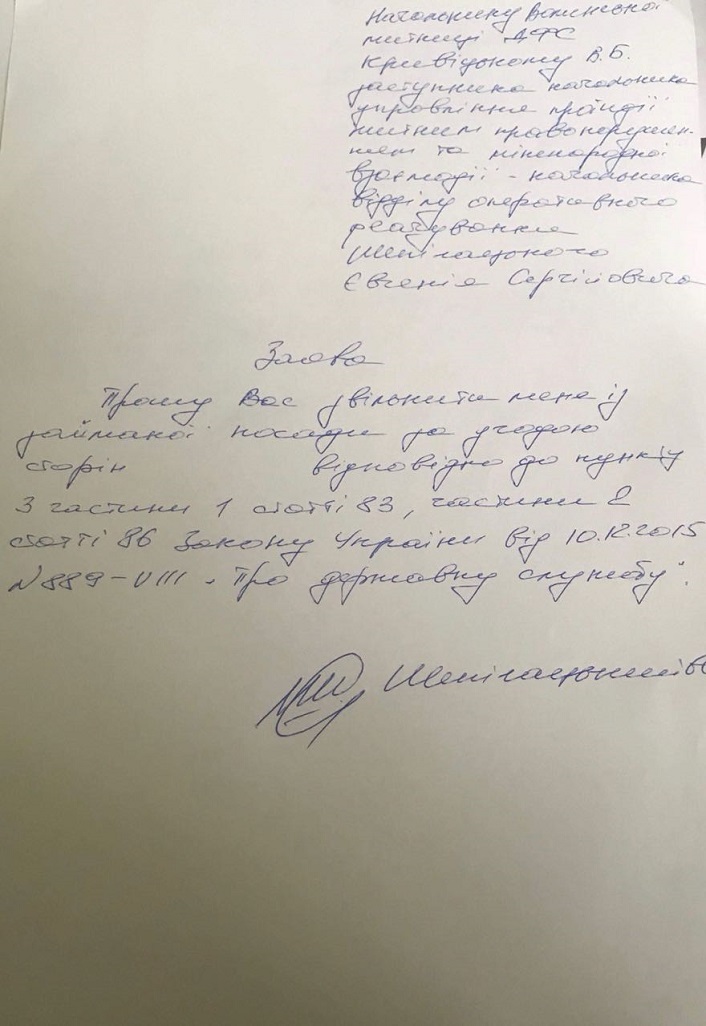 Начальнику Волинської
митниці ДФС
Кривіцькому В.Б.
заступника начальника
управління протидії
митним правопорушен-
ням та міжнародної
взаємодії - начальника
відділу оперативного
реагування
Шепілацького
Євгенія Сергійовича
Заява
Прошу Вас звільнити мене із
займаної посади за угодою
сторін відповідно до пункту
3 частини 1 статті 83, частини 2
статті 86 Закону України від 10.12.2015
№889-VIII "Про державну службу".